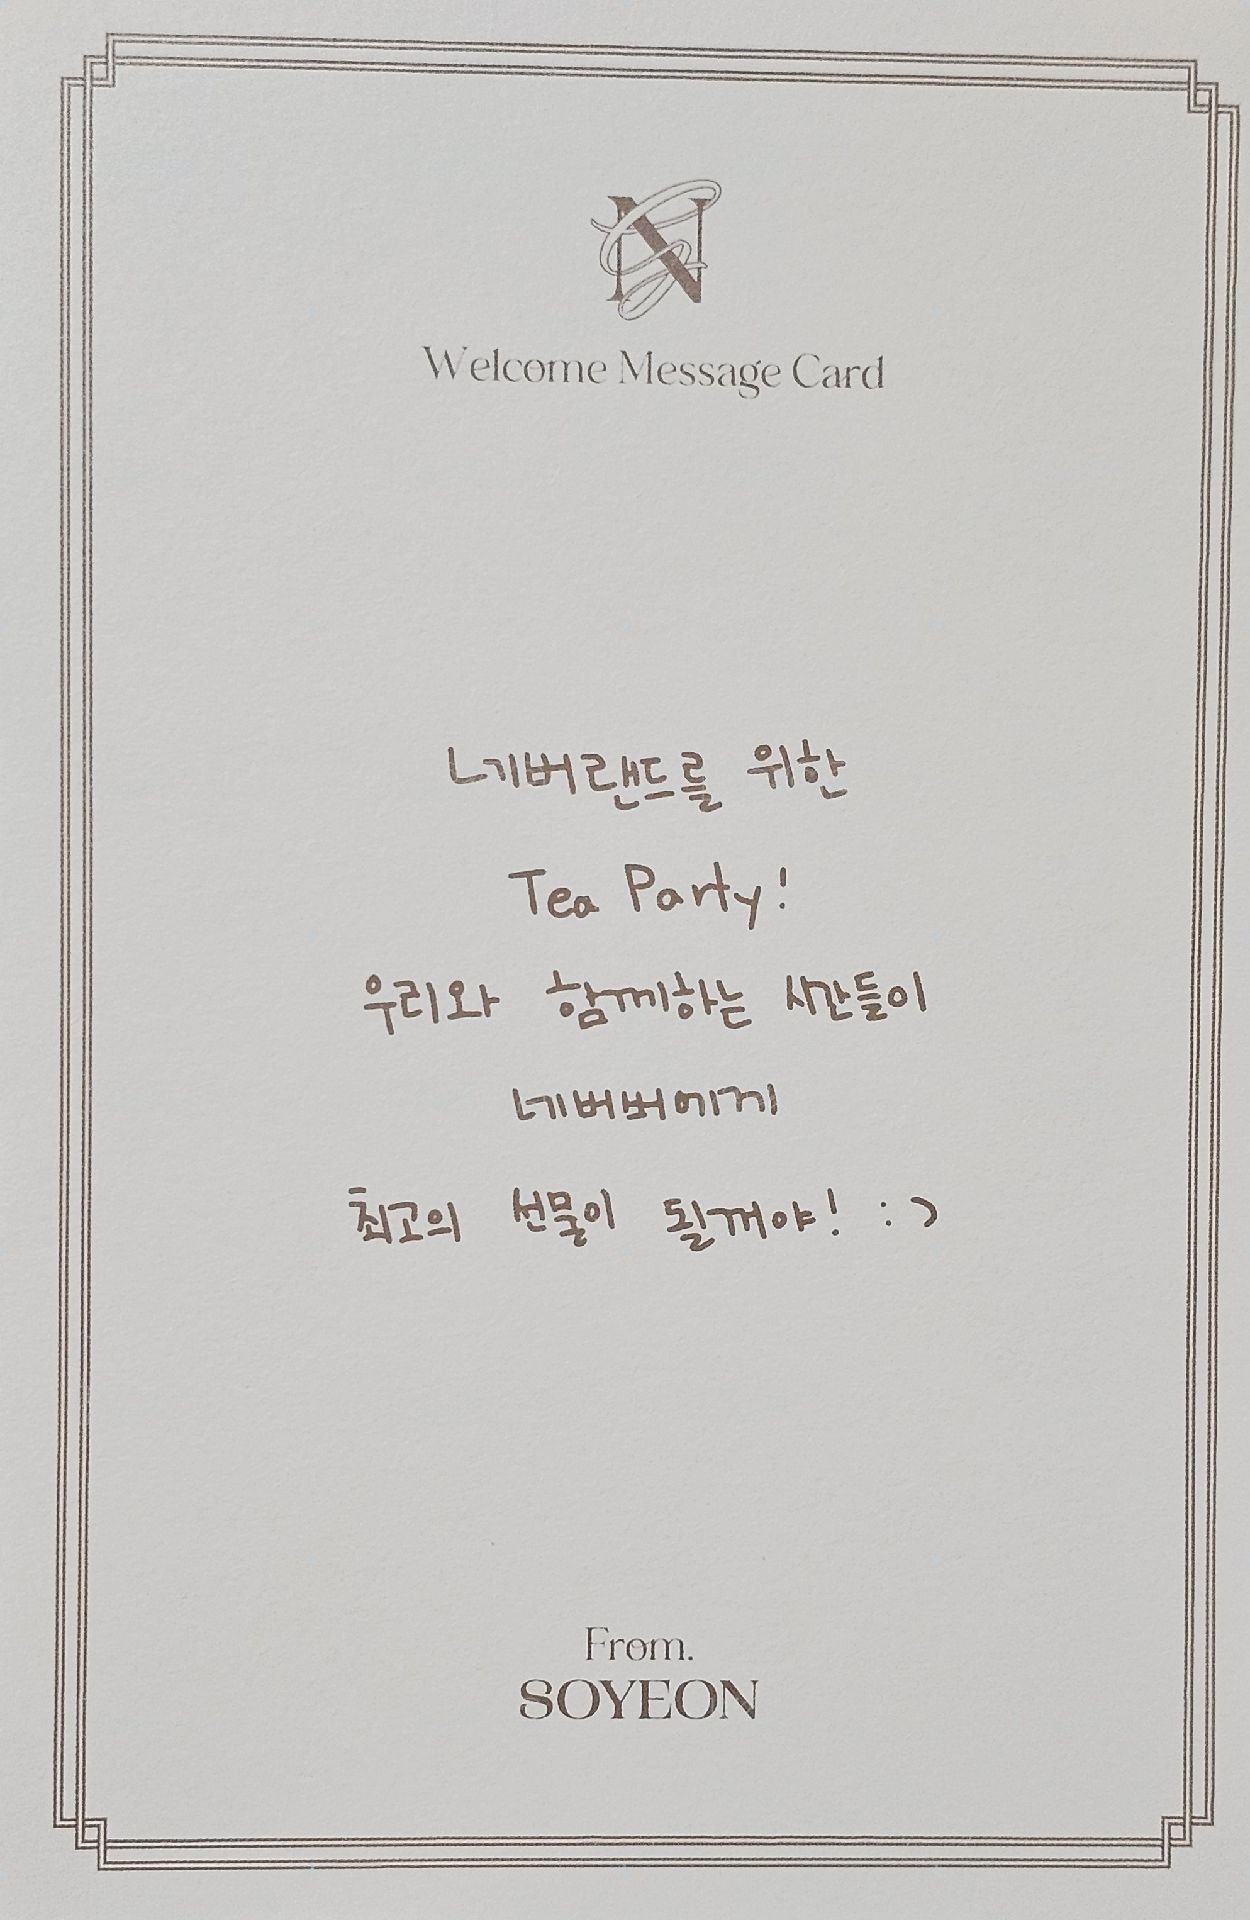 Welcome Message Card
네버랜드를 위한
Tea Party!
우리와 함께하는 시간들이
네버버에게
최고의 선물이 될꺼야! :)
From.
SOYEON